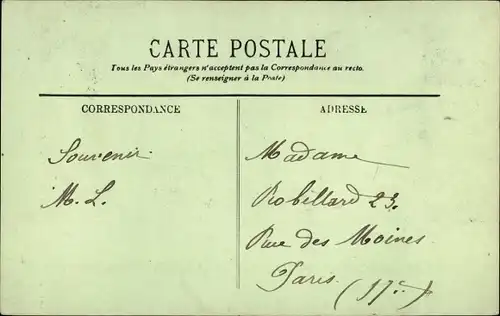 CARTE POSTALE
Tous les Pays étrangers n'acceptent pas la Correspondance au recto.
(Se renseigner à la Poste)
CORRESPONDANCE
Souvenir.
M. L.
ADRESSE
Madame
Robillard 23.
Rue des Moines
Paris.
(17e)